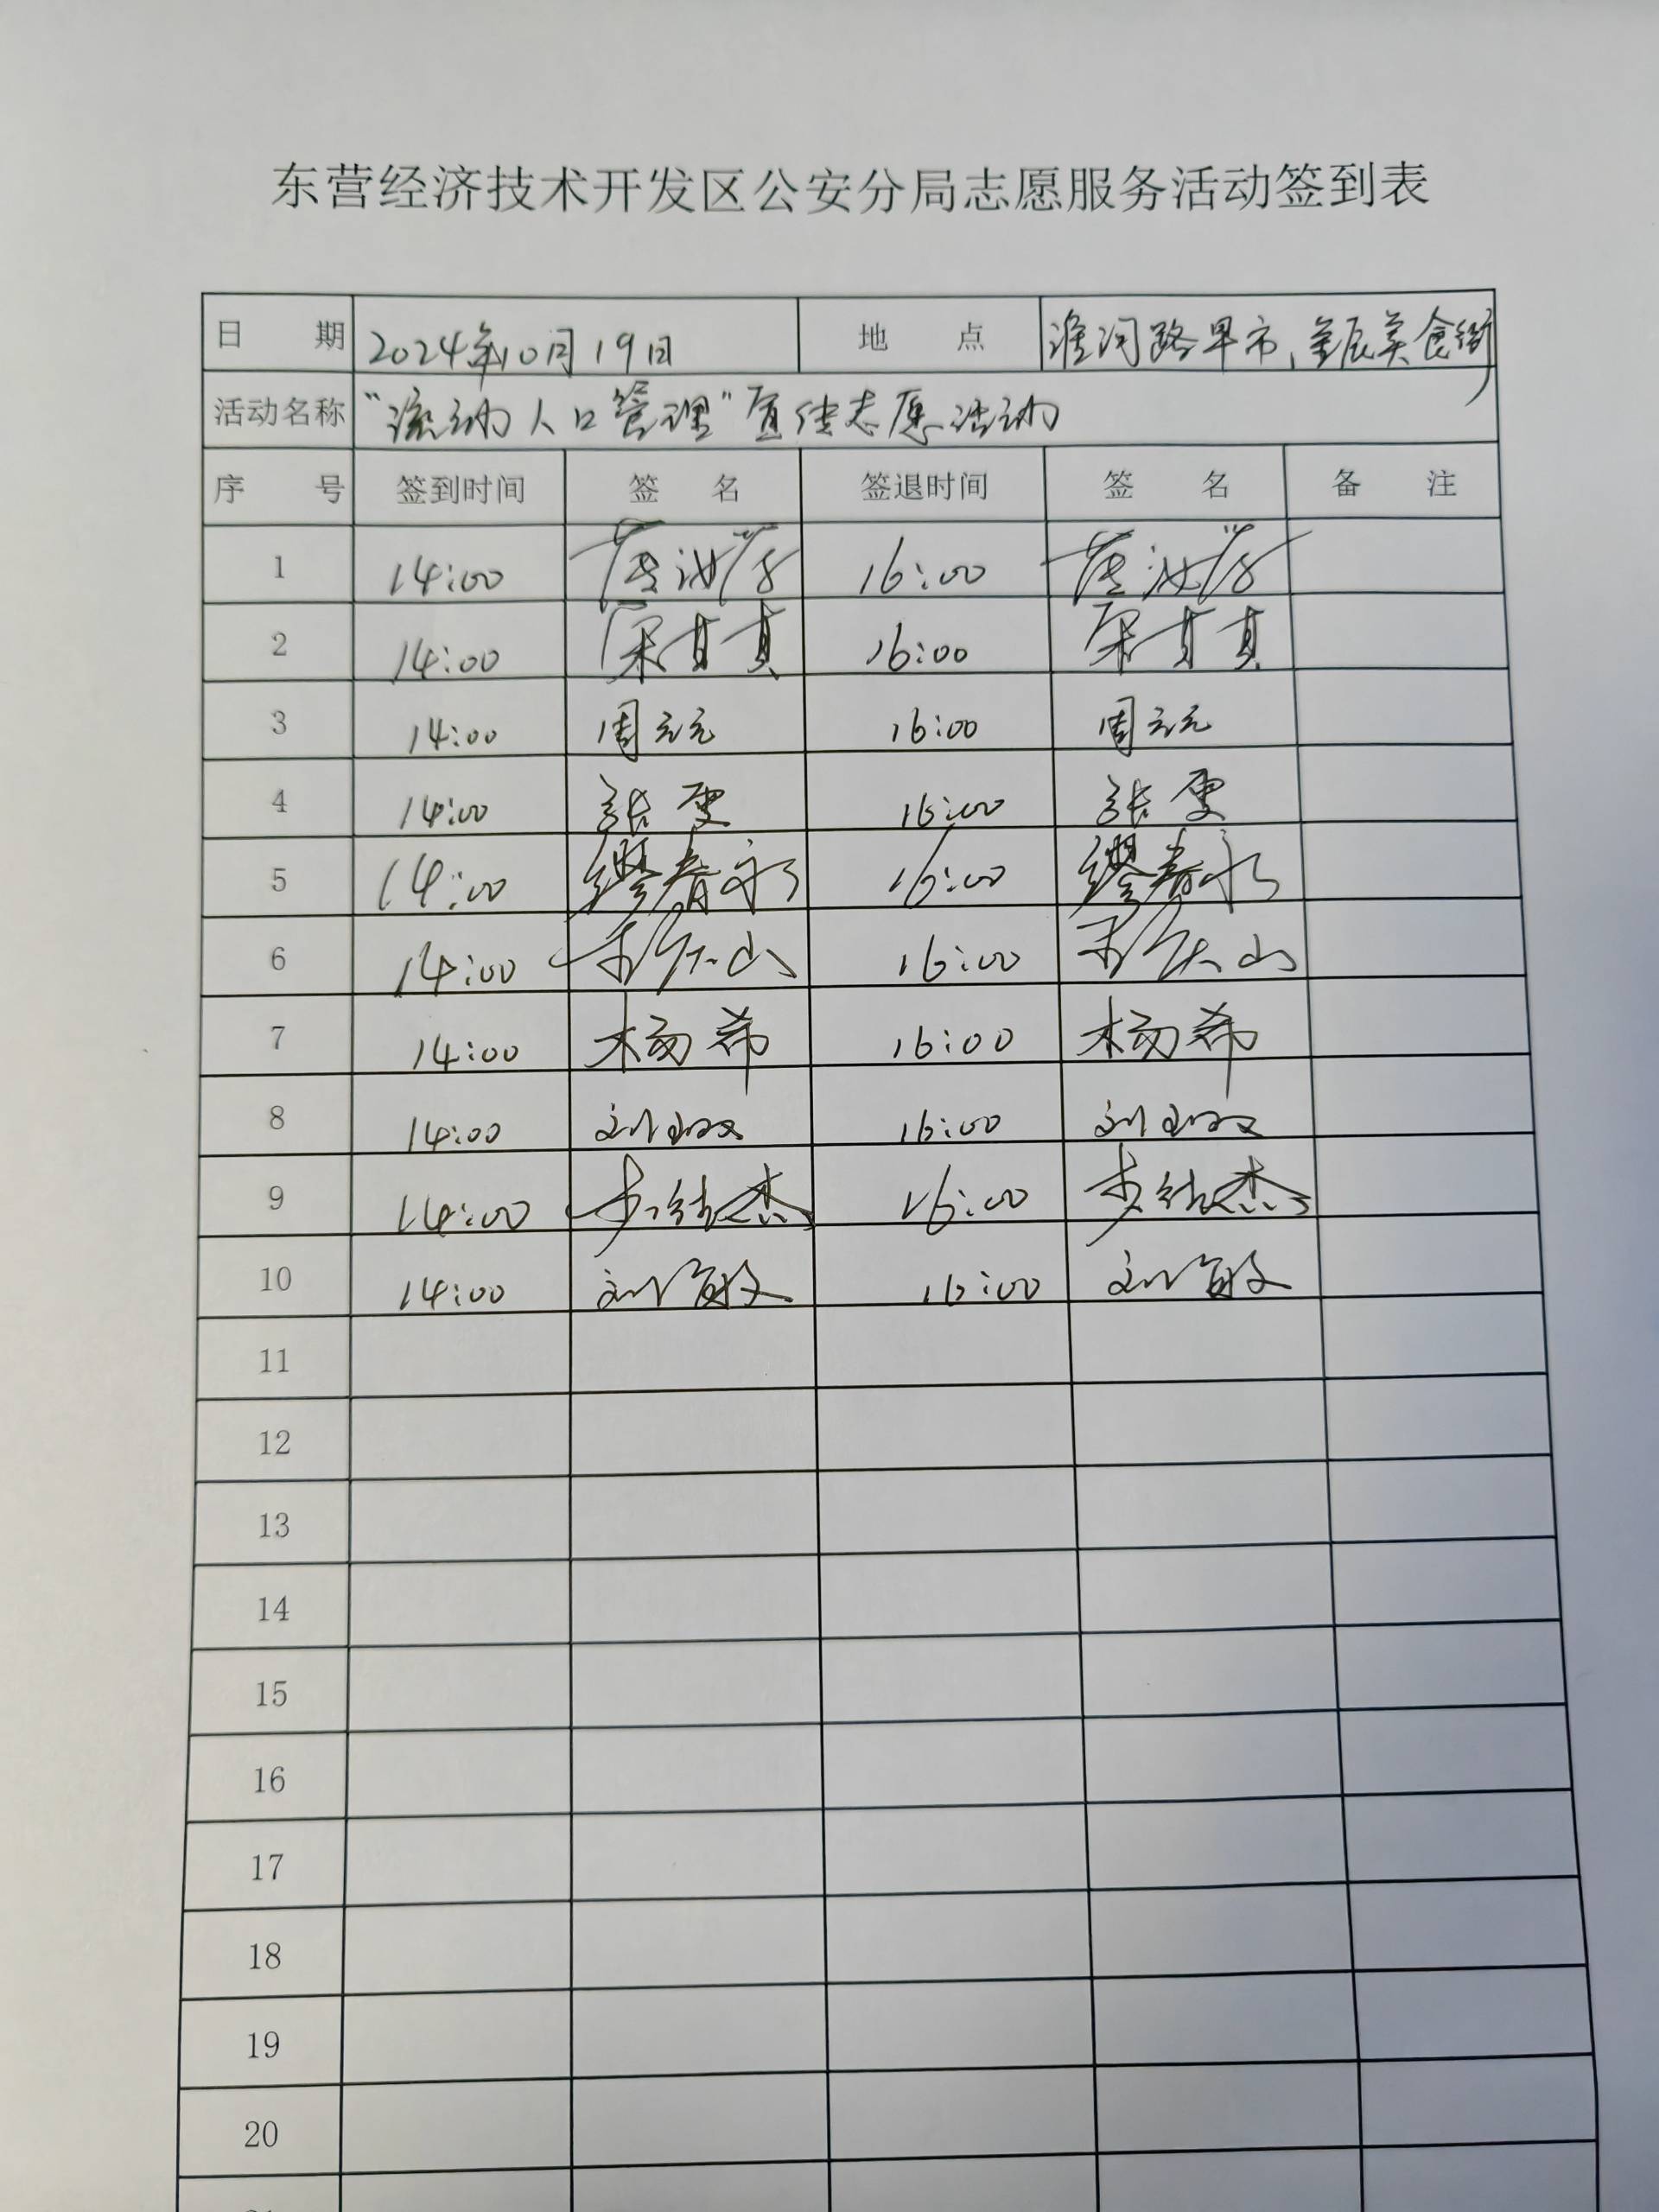 东营经济技术开发区公安分局志愿服务活动签到表
日 期 2024年10月19日 地 点 淮河路早市、金辰美食街
活动名称 "流动人口管理"宣传志愿活动
序 号 签到时间 签 名 签退时间 签 名 备 注
1 14:00 16:00
2 14:00 16:00
3 14:00 周元元 16:00 周元元
4 14:00 张雯 16:00 张雯
5 14:00 缪春永 16:00 缪春永
6 14:00 山 16:00 山
7 14:00 杨希 16:00 杨希
8 14:00 刘 16:00 刘
9 14:00 步 杰 16:00 步 杰
10 14:00 刘 16:00 刘
11
12
13
14
15
16
17
18
19
20